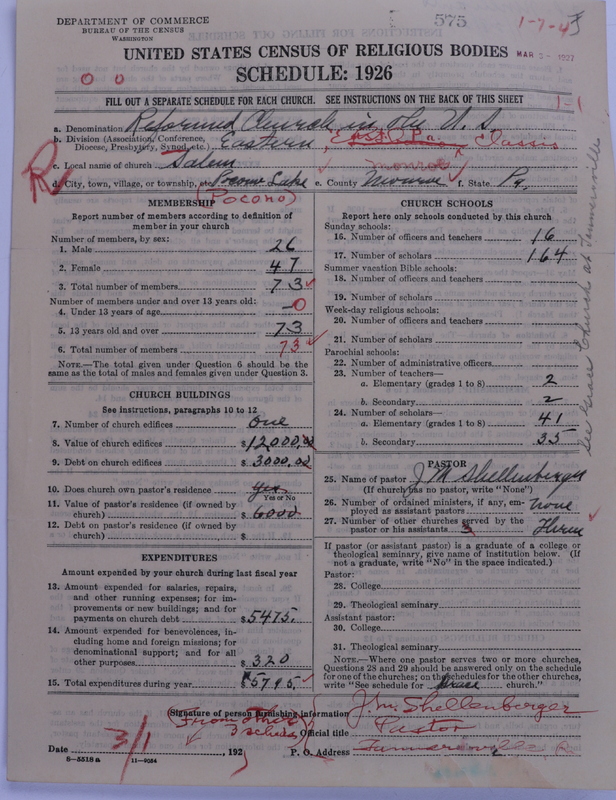 DEPARTMENT OF COMMERCE
BUREAU OF THE CENSUS
WASHINGTON
575
1-7-45
UNITED STATES CENSUS OF RELIGIOUS BODIES
MAR 2- 1927
SCHEDULE: 1926
FILL OUT A SEPARATE SCHEDULE FOR EACH CHURCH. SEE INSTRUCTIONS ON THE BACK OF THIS SHEET
1-1
a. Denomination Reformed Church in the U. S.
b. Division (Association, Conference, Diocese, Presbytery, Synod, etc.) Eastern East Pa. Classis
c. Local name of church Salem
Monroe
d. City, town, village, or township, etc. Pocono Lake e. County Monroe f. State Pa.
R
(Pocono)
MEMBERSHIP
Report number of members according to definition of member in your church
Number of members, by sex:
1. Male 26
2. Female 47
3. Total number of members 73
Number of members under and over 13 years old:
4. Under 13 years of age 0
5. 13 years old and over 73
6. Total number of members 73
NOTE.—The total given under Question 6 should be the same as the total of males and females given under Question 3.
CHURCH BUILDINGS
See instructions, paragraphs 10 to 12
7. Number of church edifices One
8. Value of church edifices $12000.00
9. Debt on church edifices $3000.00
10. Does church own pastor's residence Yes
Yes or No
11. Value of pastor's residence (if owned by church) $6000
12. Debt on pastor's residence (if owned by church) $
EXPENDITURES
Amount expended by your church during last fiscal year
13. Amount expended for salaries, repairs, and other running expenses; for improvements or new buildings; and for payments on church debt $5475.
14. Amount expended for benevolences, including home and foreign missions; for denominational support; and for all other purposes $320
15. Total expenditures during year $5795.
CHURCH SCHOOLS
Report here only schools conducted by this church
Sunday schools:
16. Number of officers and teachers 16
17. Number of scholars 164
Summer vacation Bible schools:
18. Number of officers and teachers
19. Number of scholars
Week-day religious schools:
20. Number of officers and teachers
21. Number of scholars
Parochial schools:
22. Number of administrative officers
23. Number of teachers—
a. Elementary (grades 1 to 8) 2
b. Secondary 2
24. Number of scholars—
a. Elementary (grades 1 to 8) 41
b. Secondary 35
PASTOR
25. Name of pastor J M Shellenberger
(If church has no pastor, write "None")
26. Number of ordained ministers, if any, employed as assistant pastors None
27. Number of other churches served by the pastor or his assistants 3 Three
If pastor (or assistant pastor) is a graduate of a college or theological seminary, give name of institution below. (If not a graduate, write "No" in the space indicated.)
Pastor:
28. College
29. Theological seminary
Assistant pastor:
30. College
31. Theological seminary
NOTE.—Where one pastor serves two or more churches, Questions 28 and 29 should be answered only on the schedule for one of the churches; on the schedules for the other churches, write "See schedule for Grace church."
See Grace Church at Tannersville
(Signature of person furnishing information) J. M. Shellenberger
From other sched.
Official title Pastor
Date 3/1, 192
P. O. Address Tannersville, Pa
S—5518 a 11—9054